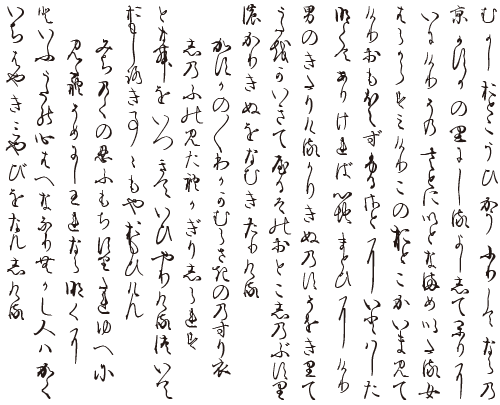 むかしおとこうひかうふりしてならの
京かすかの里にしるよしして かりに
いにけりその さとに いとなまめいたる女
はらからすみけりこの おとこかいま見て
けりおもほえずふるさとに いとはした
なくてありければ心地まどひにけり
男のきたりけるかりきぬのすそをきりて
うたをかきてやるそのおとこしのぶすり
のかりきぬをなむきたりける
かすかのゝわかむらさきのすり衣
しのふのみたれかぎりしられす
となむをいつきていひやりけるついて
おもしろきことゝもやおもひけん
みちのくの忍ふもちすりたれゆへに
みたれそめにしわれならなくに
といふうたの心はへなりむかし人はかく
いちはやきみやびをなんしける